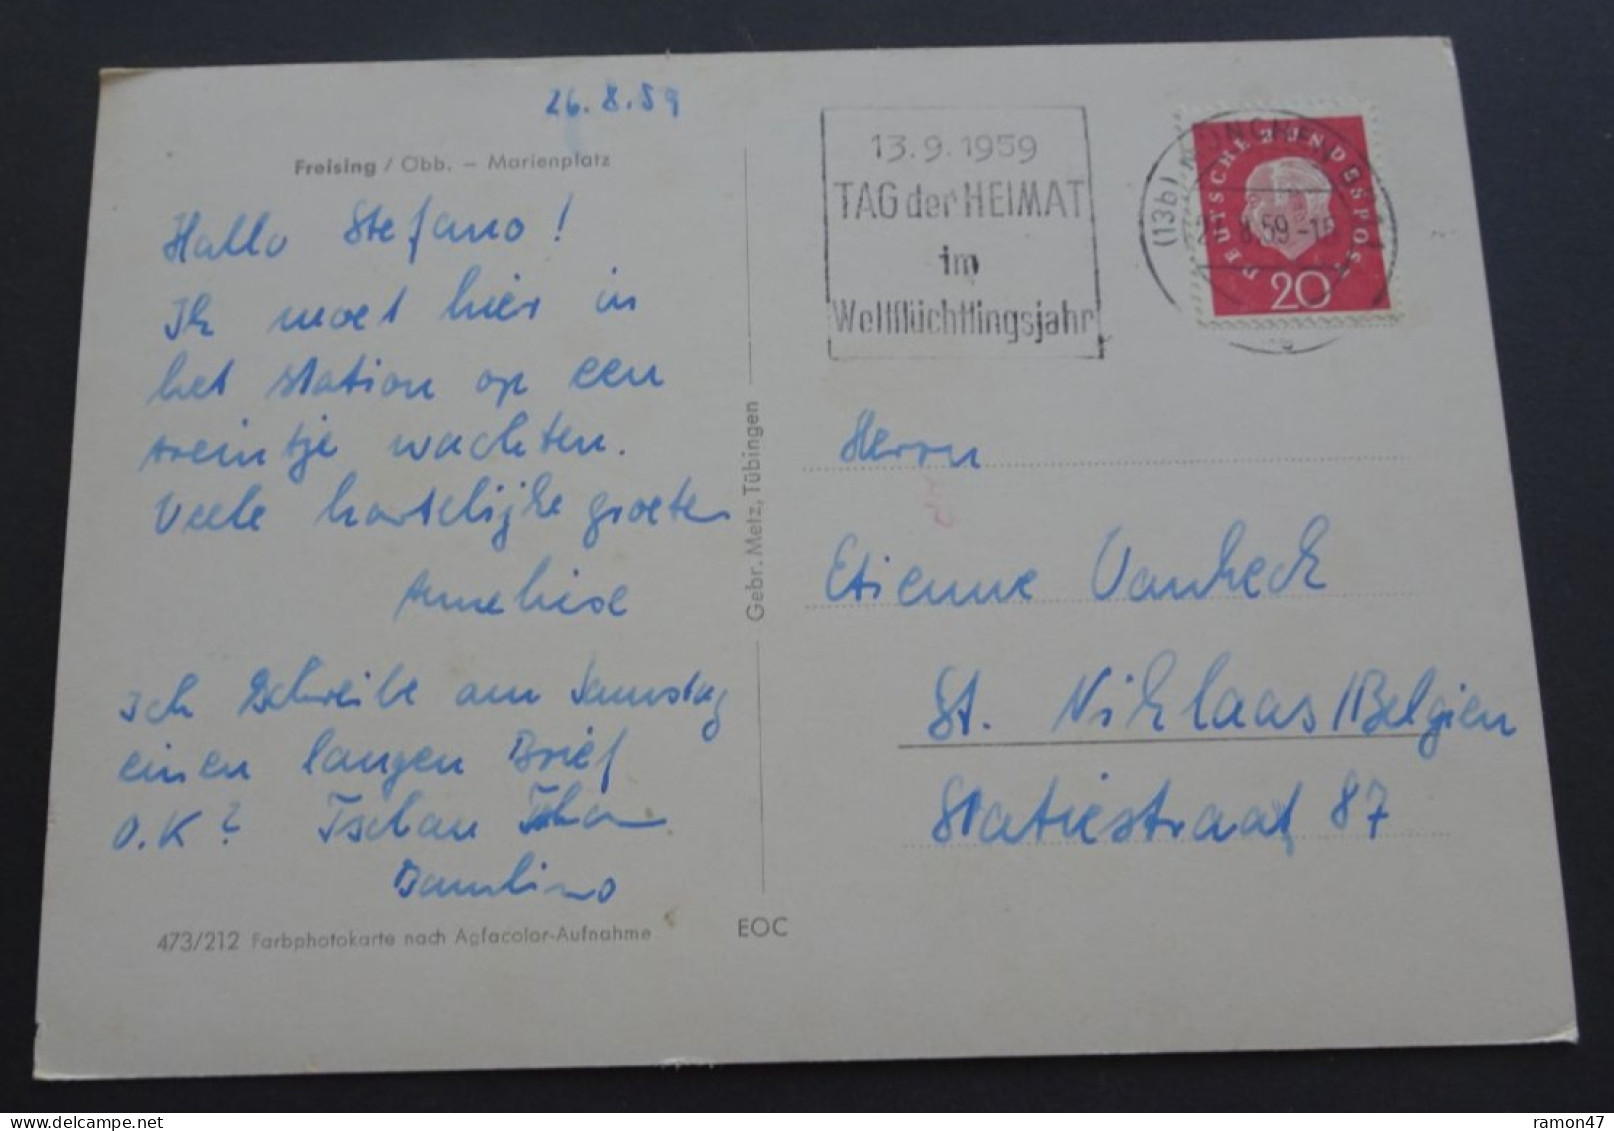 26.8.59
Freising / Obb. – Marienplatz
Hallo Stefano!
Ik moet hier in
het station op een
treintje wachten.
Veele hartelijke groeten
Anneliese
Ich schreibe am Samstag
einen langen Brief
O.K? Tschau
Bambino
473/212 Farbphotokarte nach Agfacolor-Aufnahme
Gebr. Metz, Tübingen
EOC
13.9.1959
TAG der HEIMAT
im
Weltflüchtlingsjahr
(13b) MÜNCHEN
.59
DEUTSCHE BUNDESPOST
20
Herrn
Etienne Vanheck
St. Niklaas/Belgien
Statiestraat 87
ramon47